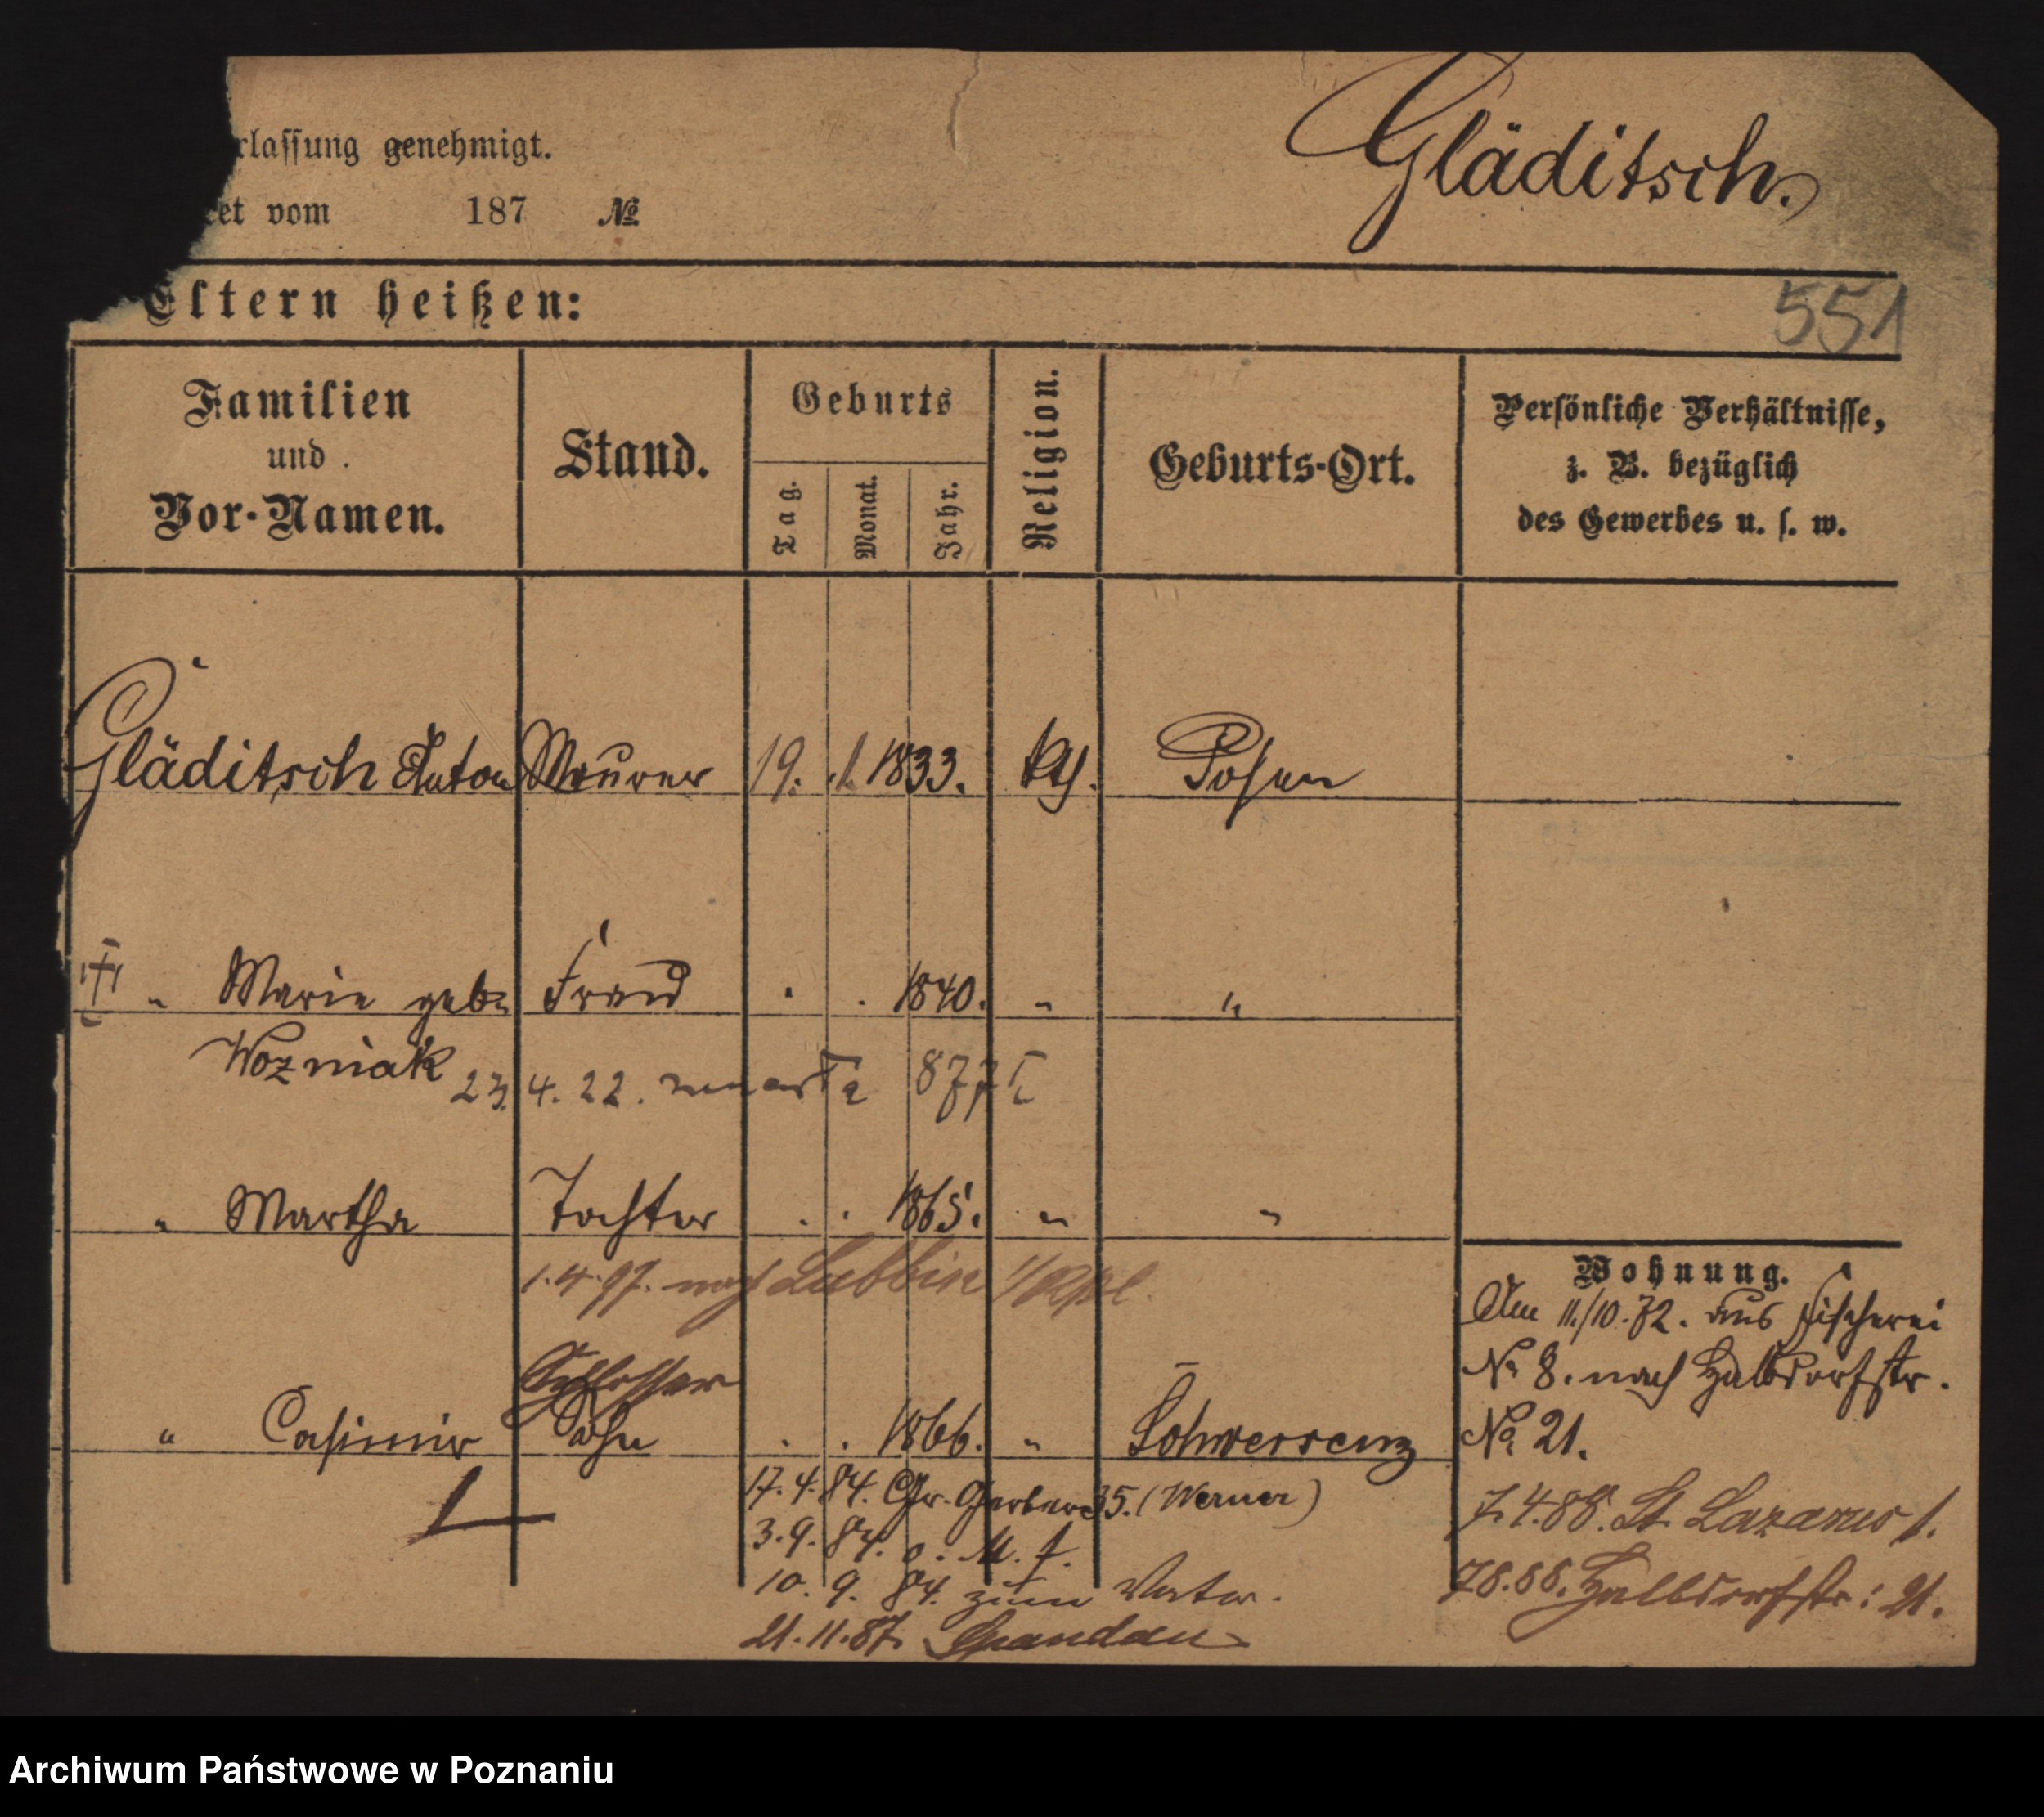 rlassung genehmigt.
Gläditsch.
et vom 187 №
Eltern heißen:
551
Familien und Vor-Namen.
Stand.
Geburts
Tag.
Monat.
Jahr.
Religion.
Geburts-Ort.
Persönliche Verhältnisse,
z. B. bezüglich
des Gewerbes u. s. w.
Gläditsch Anton Maurer 19. 1. 1833. kth. Posen
" Marie geb. Frau . . 1840. " "
Wozniak
23. 4. 22. zmarła 877
" Martha Tochter . . 1865. " "
1.4.97. nach Lubbin
Schlosser
" Casimir Sohn . . 1866. " Schwersenz
17.4.84. Gr. Gerber 35. (Werner)
3.9.84. o. M. f.
10.9.84. zum Vater.
21.11.87. Spandau
Wohnung.
Am 11./10.72. aus Fischerei
No 8. nach Halbdorfstr.
No 21.
7.4.88. St Lazarus 1.
7.8.88. Halbdorfstr: 21.
Archiwum Państwowe w Poznaniu